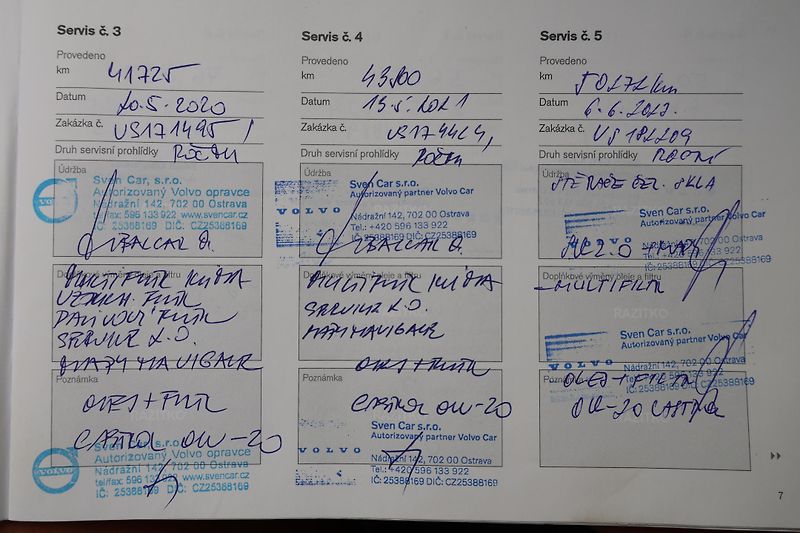 Servis č. 3
Provedeno
km 41725
Datum 20.5-2020
Zakázka č. US171495
Druh servisní prohlídky ROČNÍ
Údržba
Sven Car, s.r.o.
Autorizovaný Volvo opravce
Nádražní 142, 702 00 Ostrava
tel/fax: 596 133 922 www.svencar.cz
IČ: 25388169 DIČ: CZ25388169
VOLVO
Doplňkové výměny oleje a filtru
PALIVOVÝ FILTR
SERVICE
MAPY NAVIGACE
Poznámka
OLEJ + FILTR
RAZÍTKO
CASTROL OW-20
Sven Car, s.r.o.
Autorizovaný Volvo opravce
Nádražní 142, 702 00 Ostrava
tel/fax: 596 133 922 www.svencar.cz
IČ: 25388169 DIČ: CZ25388169
VOLVO
Servis č. 4
Provedeno
km
Datum 13.5.2021
Zakázka č.
Druh servisní prohlídky ROČNÍ
Údržba
Sven Car s.r.o.
Autorizovaný partner Volvo Car
VOLVO
Nádražní 142, 702 00 Ostrava
Tel.: +420 596 133 922
IČ: 25388169 DIČ: CZ25388169
Doplňkové výměny oleje a filtru
SERVICE
MAPY NAVIGACE
OLEJ + FILTR
Poznámka
CASTROL OW-20
Sven Car s.r.o.
Autorizovaný partner Volvo Car
VOLVO
Nádražní 142, 702 00 Ostrava
Tel.: +420 596 133 922
IČ: 25388169 DIČ: CZ25388169
Servis č. 5
Provedeno
km
Datum
Zakázka č.
Druh servisní prohlídky ROČNÍ
Údržba
STĚRAČE ČEL. SKLA
Sven Car s.r.o.
Autorizovaný partner Volvo Car
VOLVO
Nádražní 142, 702 00 Ostrava
IČ: 25388169 DIČ: CZ25388169
Doplňkové výměny oleje a filtru
- MULTIFILTR
RAZÍTKO
Sven Car s.r.o.
Autorizovaný partner Volvo Car
VOLVO
Nádražní 142, 702 00 Ostrava
Tel.: +420 596 133 922
IČ: 25388169 DIČ: CZ25388169
Poznámka
OLEJ + FILTR
OW-20 CASTROL
7